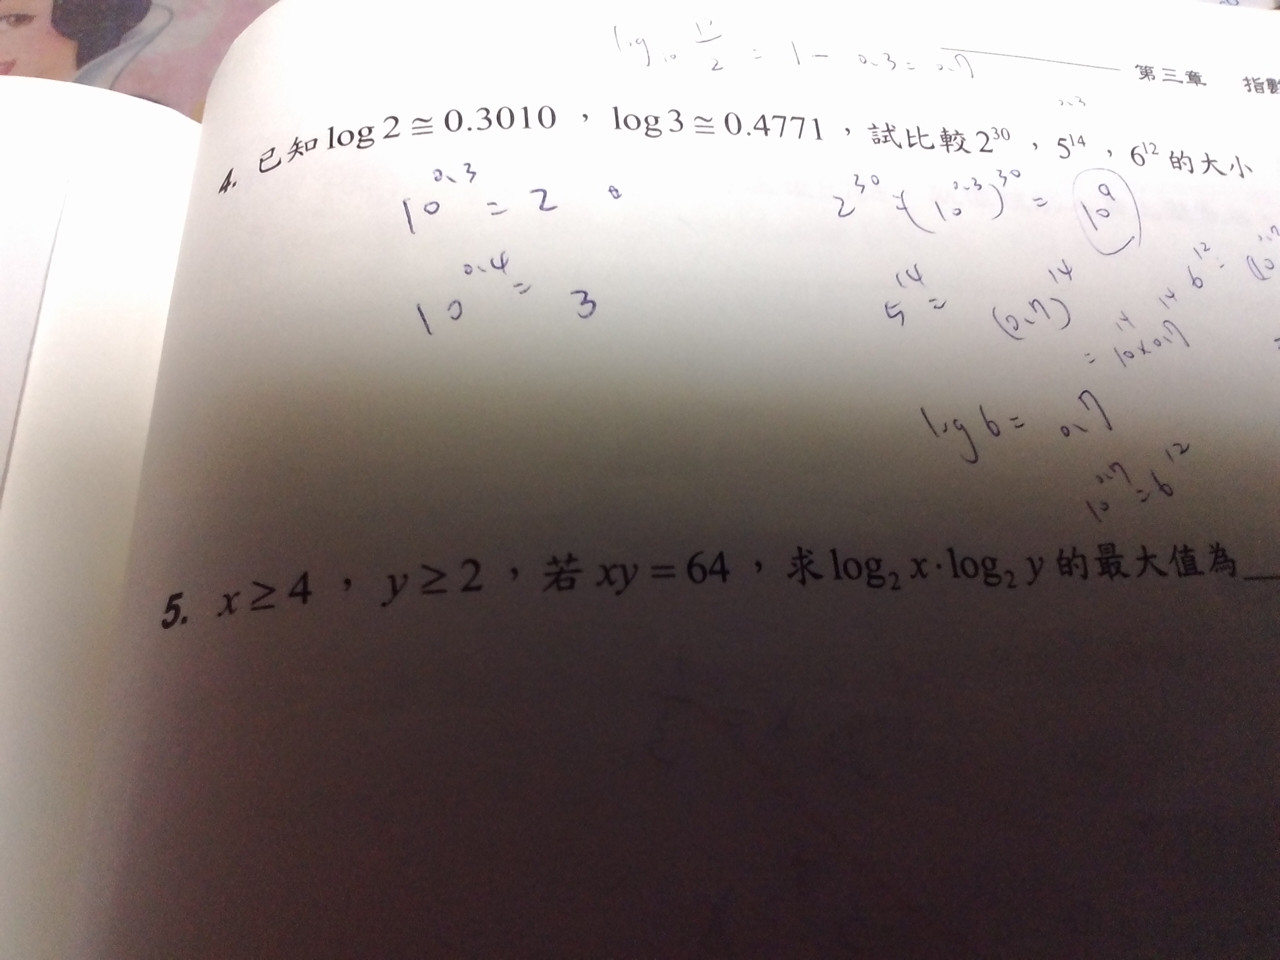 log₁₀ 10/2 = 1 - 0.3 = 0.7
第三章 指數
0.3
4. 已知log2≅0.3010，log3≅0.4771，試比較2³⁰，5¹⁴，6¹²的大小
10^0.3 = 2
2³⁰ = (10^0.3)³⁰ = 10⁹
10^0.4 = 3
5¹⁴ = (0.7)¹⁴
= 10¹⁴×0.7¹⁴
6¹² = (10^0.7
log 6 = 0.7
10^0.7 = 6¹²
5. x≥4，y≥2，若xy=64，求log₂x·log₂y的最大值為